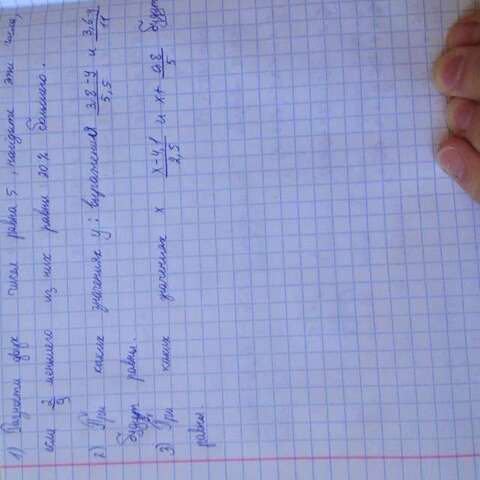 1) Разность двух чисел равна 5, найдите эти числа,
если 2/9 меньшего из них равны 20% большего.
2) При каких значениях y: выражения 3,8-y/5,5 и 3,6y/11
будут равны.
3) При каких значениях x x-4,1/2,5 и x+ /5 будут
равны.